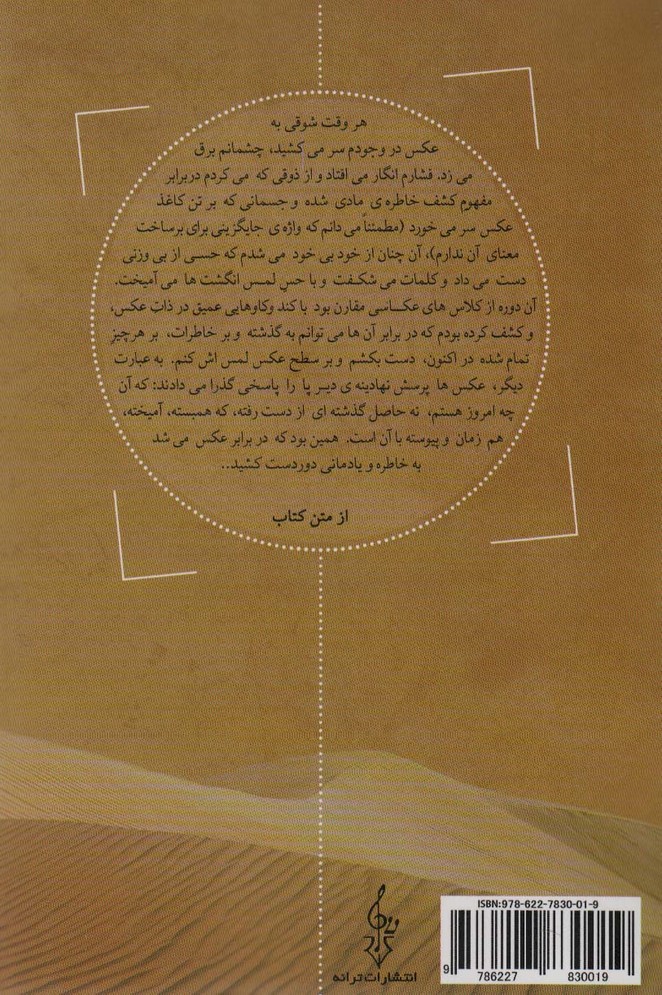 هر وقت شوقی به
عکس در وجودم سر می کشید، چشمانم برق
می زد. فشارم انگار می افتاد و از ذوقی که می کردم دربرابر
مفهوم کشف خاطره ی مادی شده و جسمانی که بر تن کاغذ
عکس سر می خورد (مطمئناً می دانم که واژه ی جایگزینی برای برساخت
معنای آن ندارم)، آن چنان از خود بی خود می شدم که حسی از بی وزنی
دست می داد و کلمات می شکفت و با حسِ لمس انگشت ها می آمیخت.
آن دوره از کلاس های عکاسی مقارن بود با کند وکاوهایی عمیق در ذات عکس،
و کشف کرده بودم که در برابر آن ها می توانم به گذشته و بر خاطرات، بر هرچیزِ
تمام شده در اکنون، دست بکشم و بر سطح عکس لمس اش کنم. به عبارت
دیگر، عکس ها پرسش نهادینه ی دیر پا را پاسخی گذرا می دادند: که آن
چه امروز هستم، نه حاصل گذشته ای از دست رفته، که همبسته، آمیخته،
هم زمان و پیوسته با آن است. همین بود که در برابر عکس می شد
به خاطره و یادمانی دوردست کشید..
از متن کتاب
ISBN:978-622-7830-01-9
9 786227 830019
انتشارات ترانه